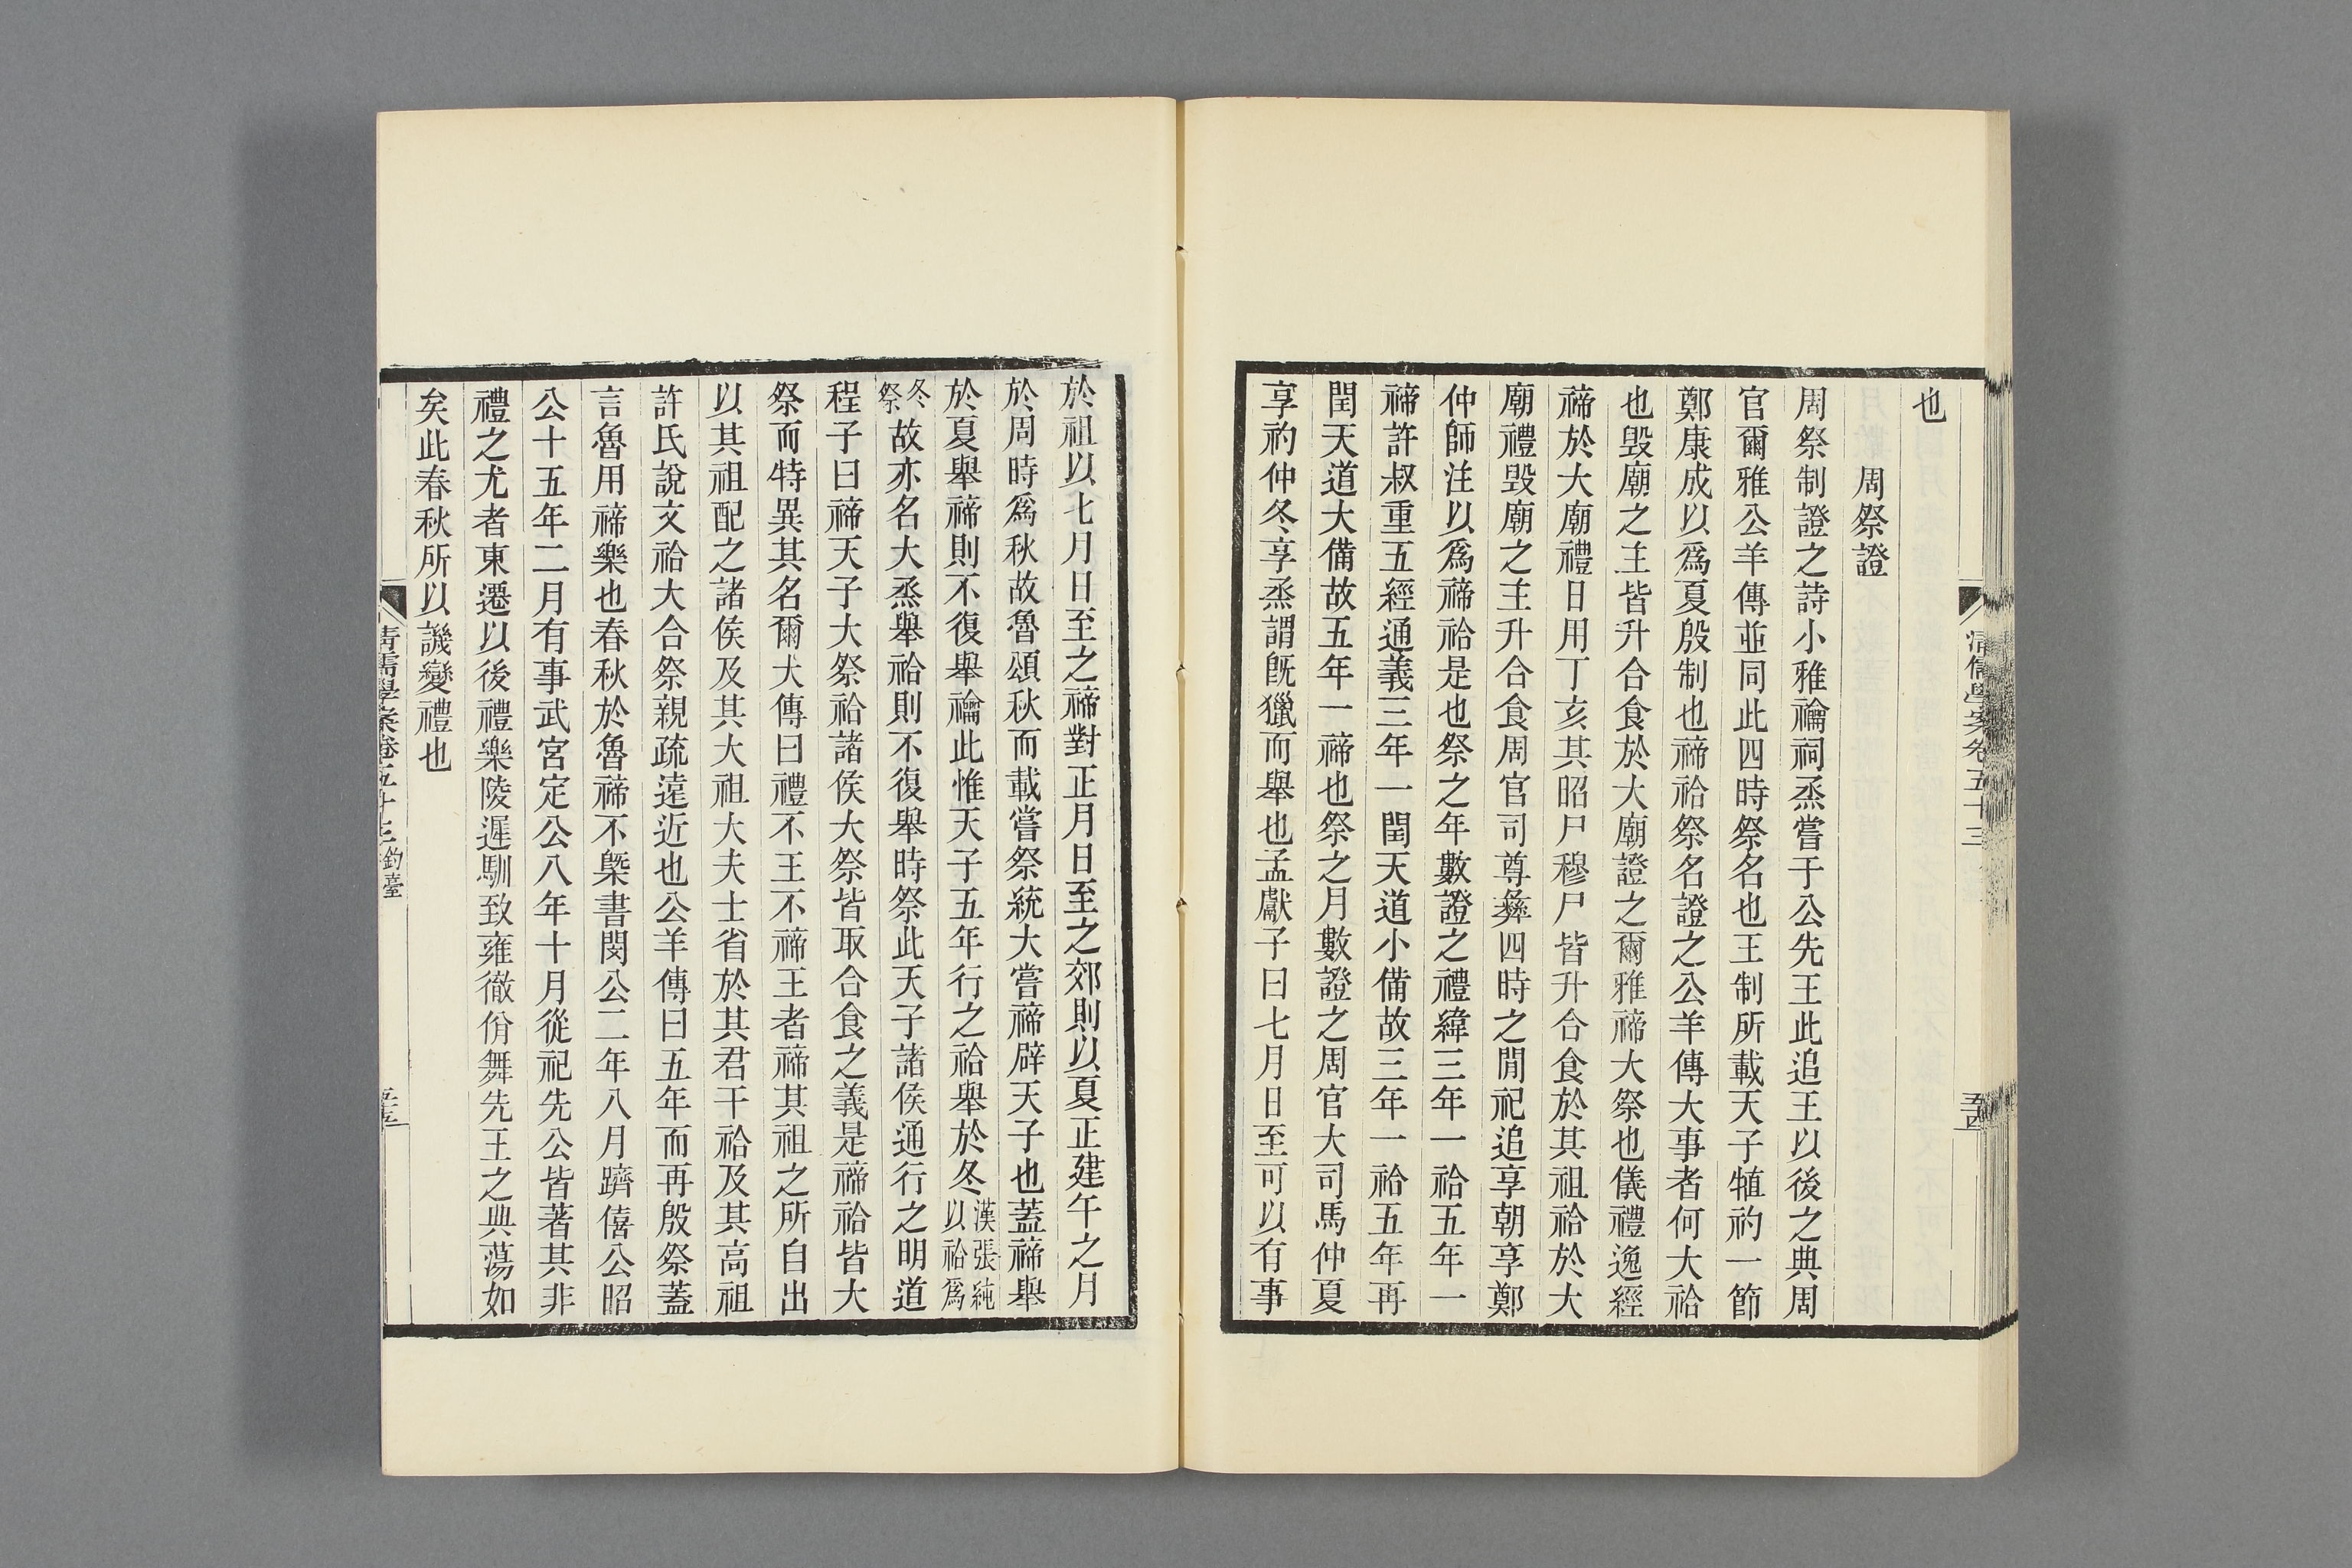 清儒學案卷五十三
五十四
也
周祭證
周祭制證之詩小雅禴祠烝嘗于公先王此追王以後之典周
官爾雅公羊傳並同此四時祭名也王制所載天子犆礿一節
鄭康成以爲夏殷制也禘祫祭名證之公羊傳大事者何大祫
也毀廟之主皆升合食於大廟證之爾雅禘大祭也儀禮逸經
禘於大廟禮日用丁亥其昭尸穆尸皆升合食於其祖祫於大
廟禮毀廟之主升合食周官司尊彝四時之閒祀追享朝享鄭
仲師注以爲禘祫是也祭之年數證之禮緯三年一祫五年一
禘許叔重五經通義三年一閏天道小備故三年一祫五年再
閏天道大備故五年一禘也祭之月數證之周官大司馬仲夏
享礿仲冬享烝謂旣獵而舉也孟獻子曰七月日至可以有事
於祖以七月日至之禘對正月日至之郊則以夏正建午之月
於周時爲秋故魯頌秋而載嘗祭統大嘗禘辟天子也蓋禘舉
於夏舉禘則不復舉禴此惟天子五年行之祫舉於冬漢張純以祫爲
冬祭故亦名大烝舉祫則不復舉時祭此天子諸侯通行之明道
程子曰禘天子大祭祫諸侯大祭皆取合食之義是禘祫皆大
祭而特異其名爾大傳曰禮不王不禘王者禘其祖之所自出
以其祖配之諸侯及其大祖大夫士省於其君干祫及其高祖
許氏說文祫大合祭親疏遠近也公羊傳曰五年而再殷祭蓋
言魯用禘樂也春秋於魯禘不槩書閔公二年八月躋僖公昭
公十五年二月有事武宮定公八年十月從祀先公皆著其非
禮之尤者東遷以後禮樂陵遲馴致雍徹佾舞先王之典蕩如
矣此春秋所以譏變禮也
清儒學案卷五十三 釣臺
五十五